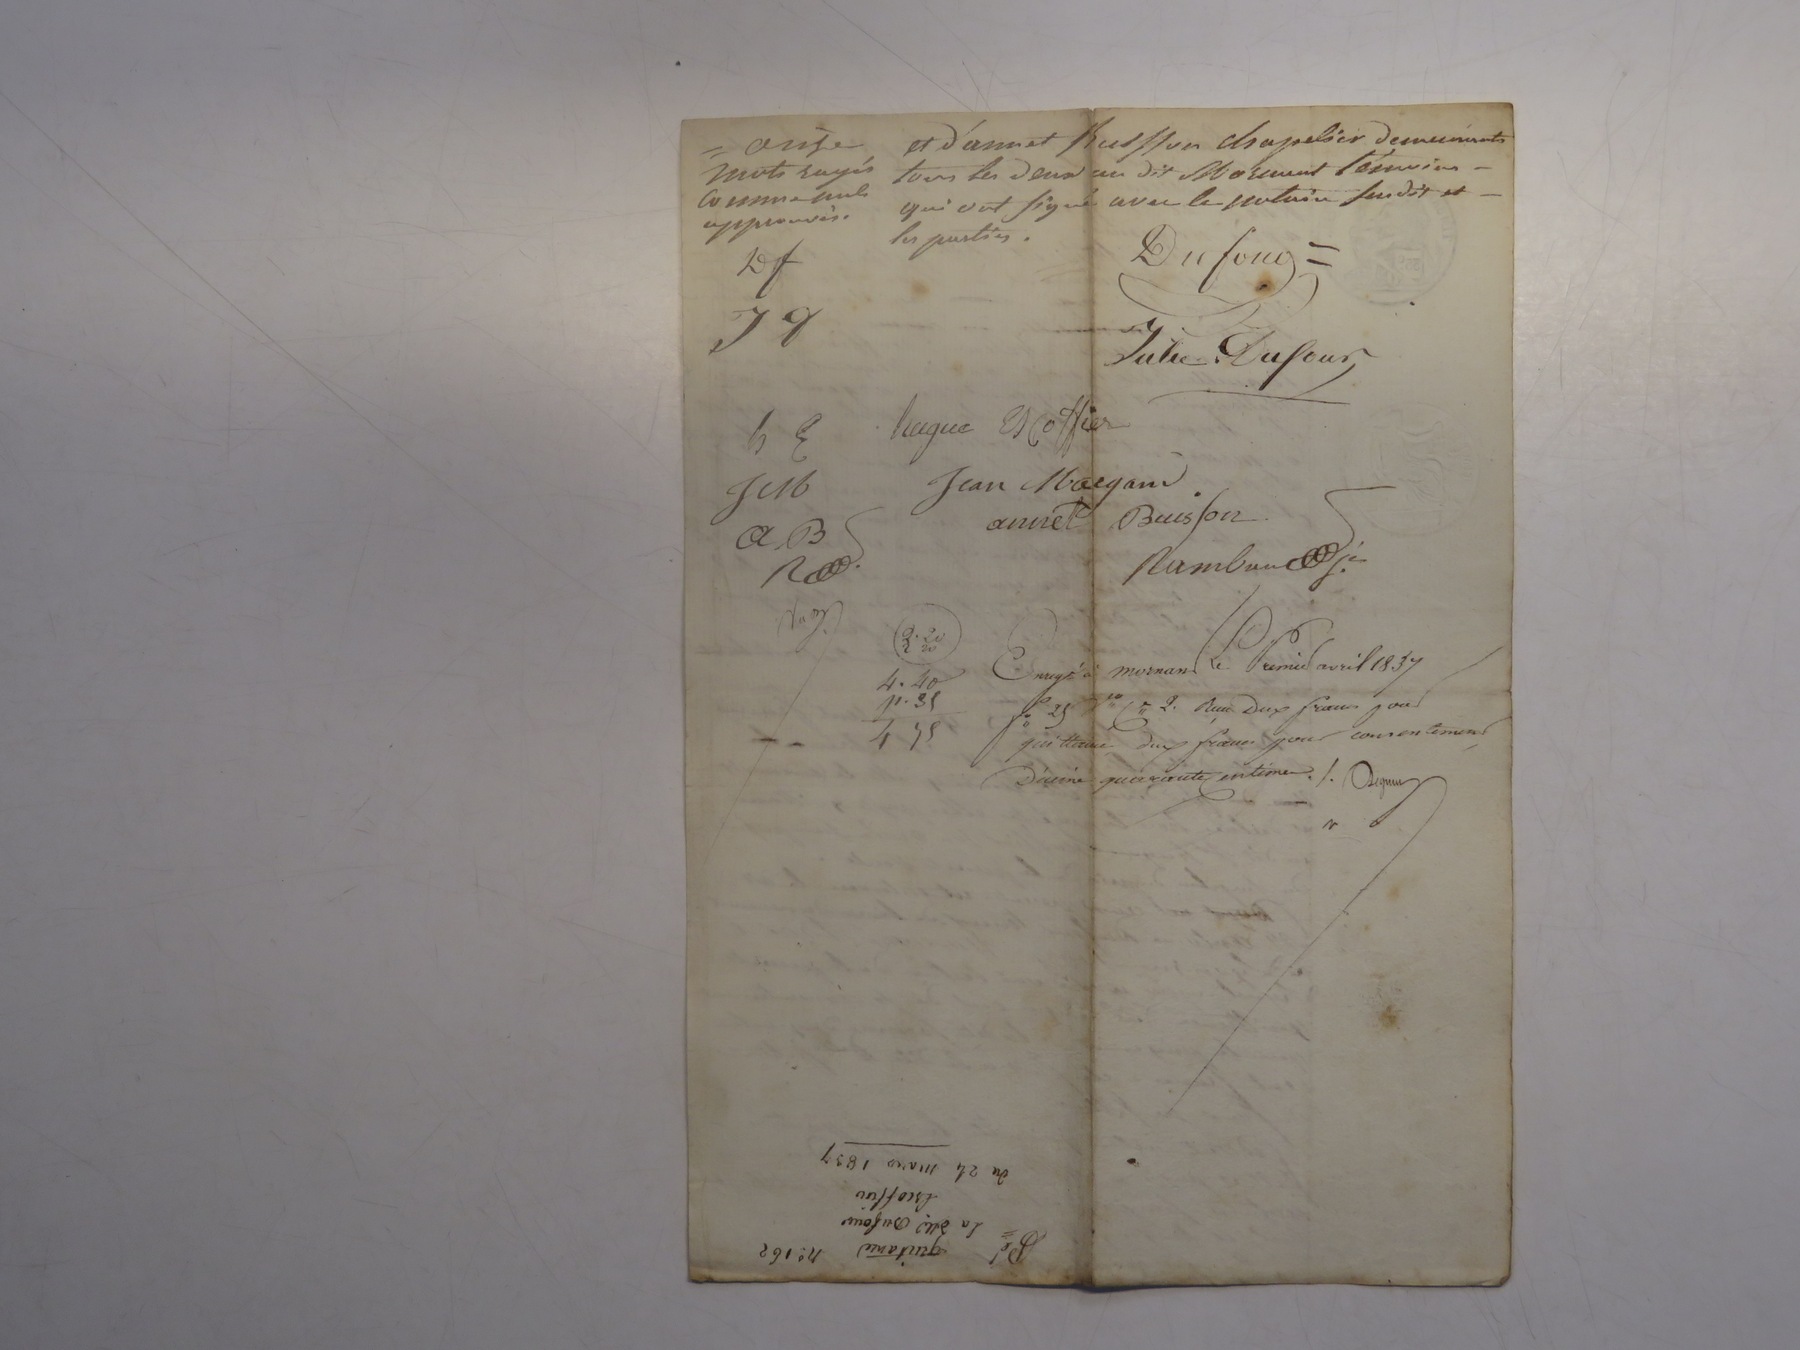 = onze
mots rayés
comme nuls
approuvés.
et d'annet Buisson chapelier demeurants
tous les deux au dit Mornant témoins -
qui ont signé avec le notaire susdit et -
les parties.
Df
Dufour =
J d
Julie Dufour
h E
hugue Escoffier
J M
Jean Margand
a. B
annet Buisson
R
Rambaud je
2. 20
2 20
4. 40
11. 35
4 75
Enregé à mornant Le Premier avril 1837
fo 25 Vo Ce 2. Reçu deux francs pour
quittance deux francs pour consentement
Décime quarante centimes ./.
No. 162
quitance
La Dlle Dufour
Escoffier
du 24 mars 1837